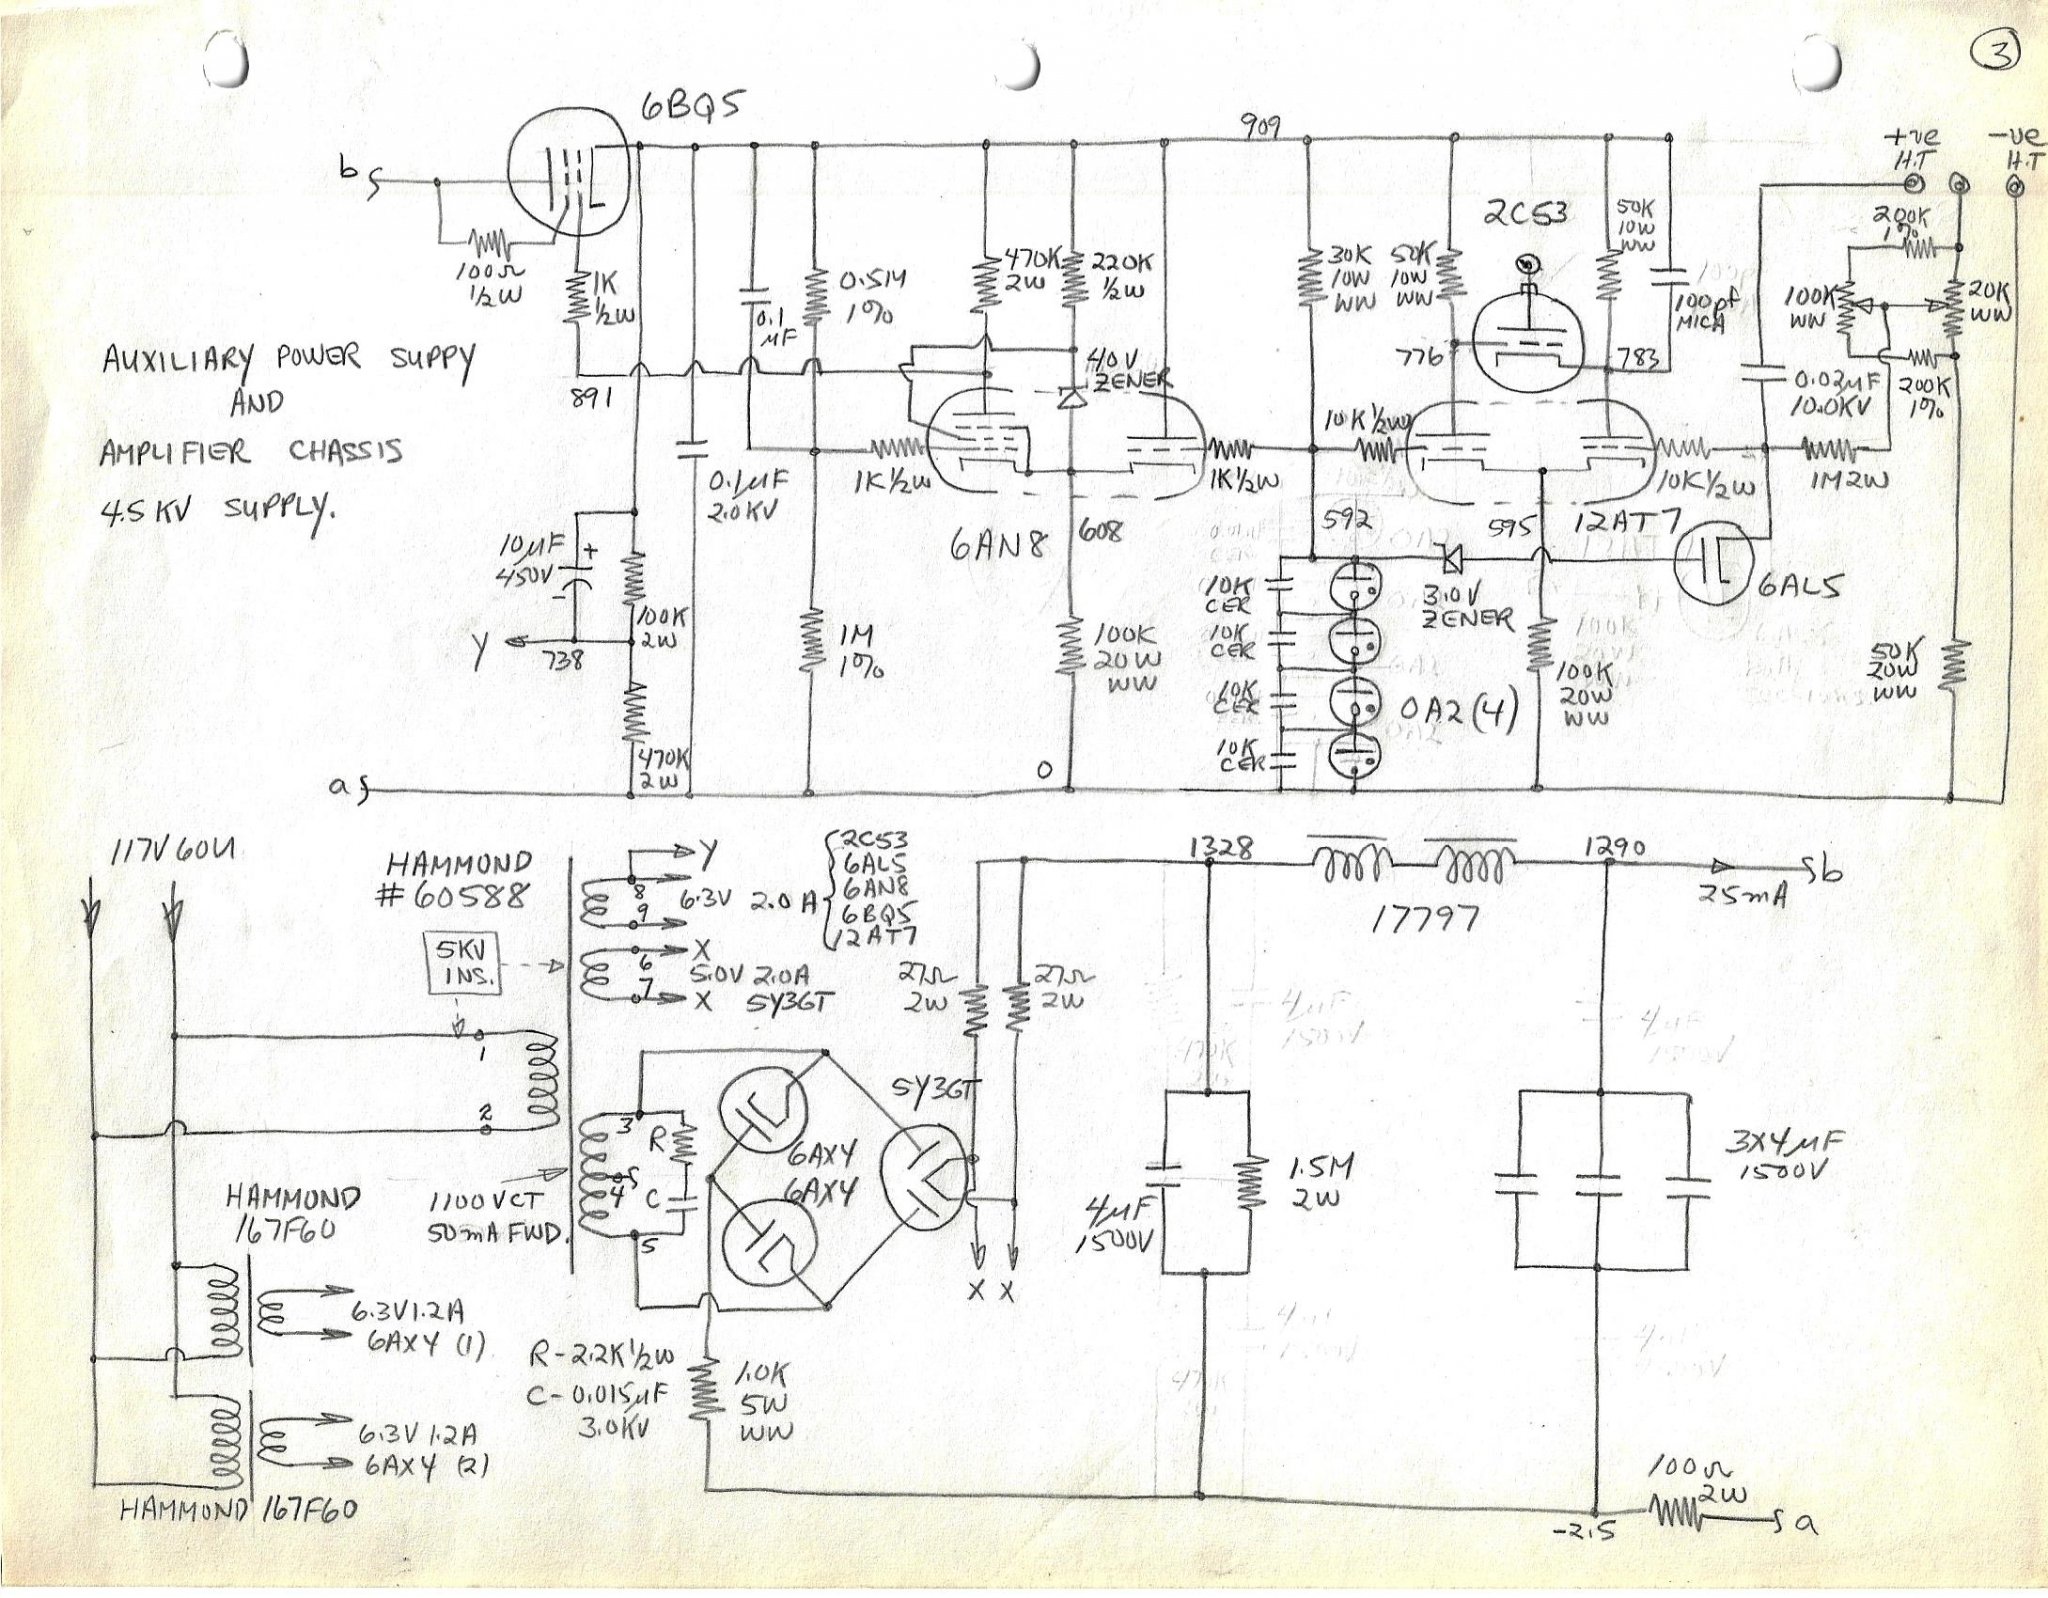 3
6BQ5
b
100Ω
1/2W
1K
1/2W
891
AUXILIARY POWER SUPPY
AND
AMPLIFIER CHASSIS
4.5KV SUPPLY.
10µF
450V
+
-
Y
738
100K
2W
470K
2W
a
0.1µF
2.0KV
0.1
µF
0.5M
1%
1M
1%
470K
2W
220K
1/2W
40V
ZENER
1K1/2W
6AN8
608
100K
20W
WW
0
1K1/2W
909
30K
10W
WW
50K
10W
WW
2C53
50K
10W
WW
100pf
MICA
776
783
10K1/2W
592
595
12AT7
10K1/2W
10K
CER
10K
CER
10K
CER
10K
CER
OA2(4)
3.0V
ZENER
100K
20W
WW
6AL5
+ve
H.T
-ve
H.T
200K
1%
100K
WW
20K
WW
200K
1%
0.02µF
10.0KV
1M2W
50K
20W
WW
117V60U
HAMMOND
#60588
5KV
INS.
1
2
Y
8
9
6.3V 2.0A
2C53
6AL5
6AN8
6BQ5
12AT7
X
6
7
X
5.0V 2.0A
5Y3GT
3
4
5
R
C
1100VCT
50mA FWD.
6AX4
6AX4
5Y3GT
27Ω
2W
27Ω
2W
X X
R-2.2K1/2W
C-0.015µF
3.0KV
1.0K
5W
WW
HAMMOND
167F60
6.3V1.2A
6AX4 (1)
6.3V1.2A
6AX4 (2)
HAMMOND 167F60
1328
17797
1290
25mA
b
4µF
1500V
1.5M
2W
3X4µF
1500V
100Ω
2W
-2.5
a